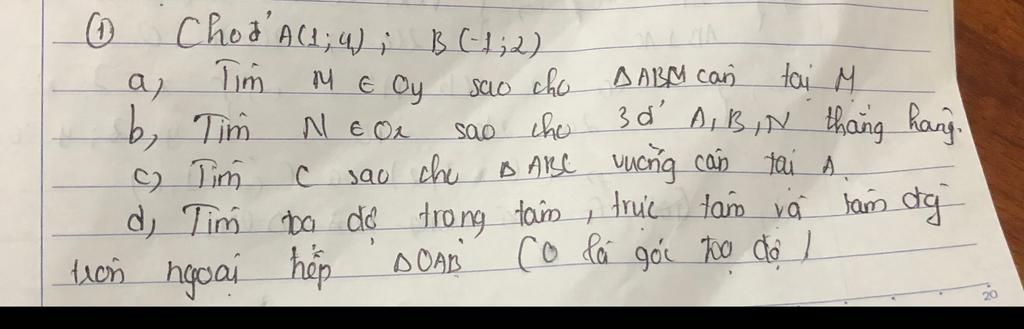 ① Cho đ' A(1;4) ; B(-1;2)
a, Tìm M ∈ Oy sao cho ΔABM cân tại M
b, Tìm N ∈ Ox sao cho 3 đ' A, B, N thẳng hàng.
c) Tìm C sao cho ΔABC vuông cân tại A
d, Tìm tọa độ trọng tâm, trực tâm và tâm đg
tròn ngoại tiếp ΔOAB (O là gốc tọa độ)
20